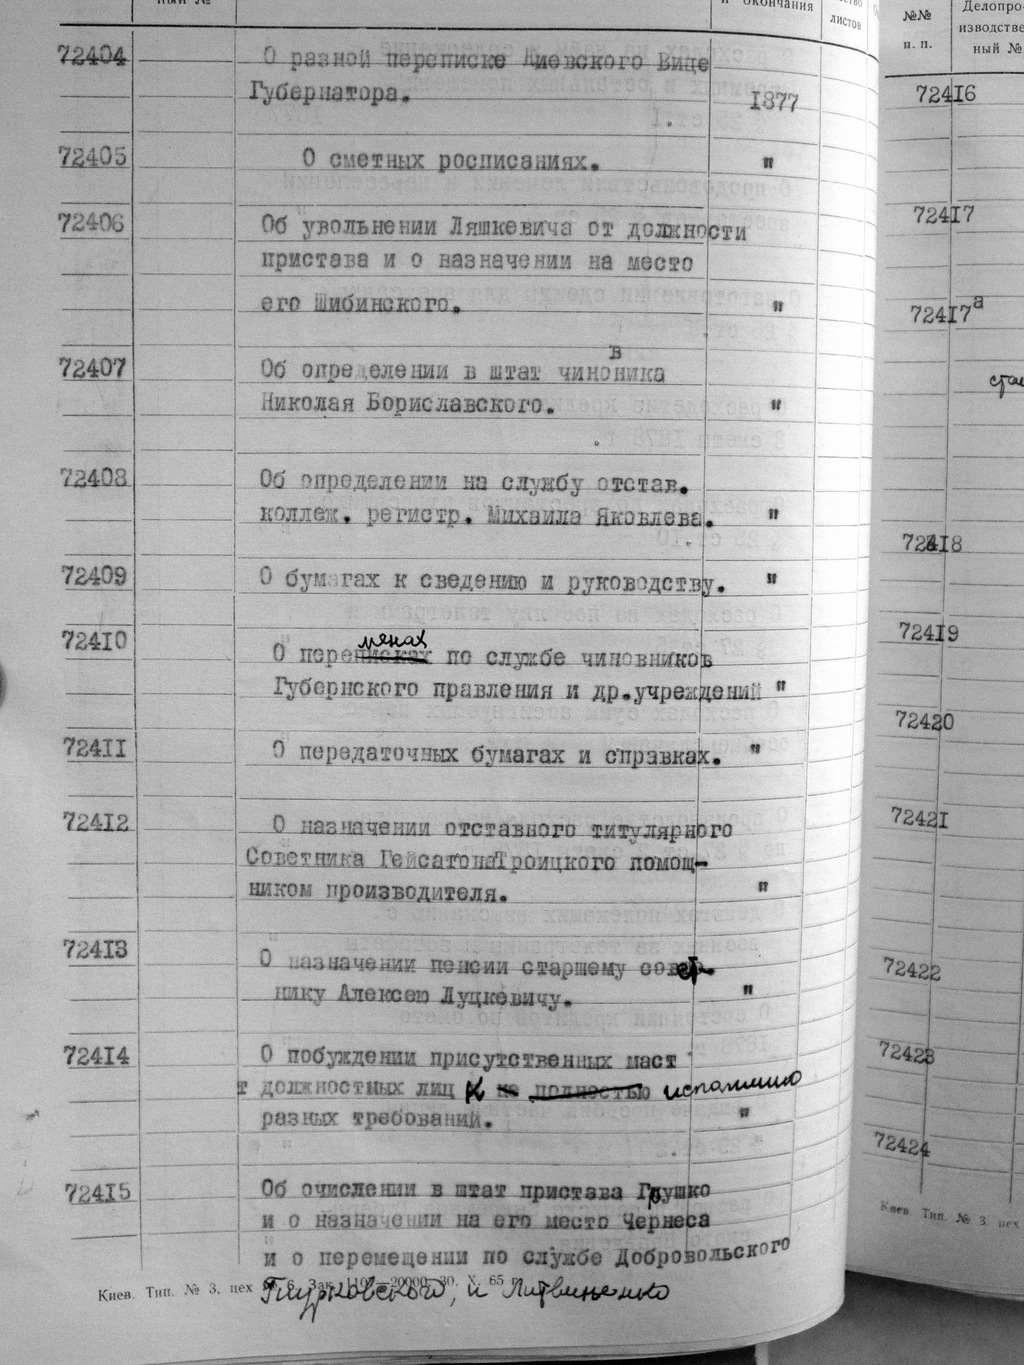 и окончания
листов
72404 О разной переписке Киевского Вице
Губернатора. 1877
72405 О сметных росписаниях. "
72406 Об увольнении Ляшкевича от должности
пристава и о назначении на место
его Шибинского. "
в
72407 Об определении в штат чиноника
Николая Бориславского. "
72408 Об определении на службу отстав.
коллеж. регистр. Михаила Яковлева. "
72409 О бумагах к сведению и руководству. "
менах
72410 О переписках по службе чиновников
Губернского правления и др.учреждений "
72411 О передаточных бумагах и справках. "
72412 О назначении отставного титулярного
Советника ГейсатонаТроицкого помощ-
ником производителя. "
72413 О назначении пенсии старшему совет-
нику Алексею Луцкевичу. "
72414 О побуждении присутственных маст
т должностных лиц к на полностью исполнению
разных требований. "
72415 Об очислении в штат пристава Грушко
и о назначении на его место Чернеса
и о перемещении по службе Добровольского
и Литвиненко
Киев. Тип. № 3, цех № 6. Зак. 20000. 30. X. 65 г.
№№
п. п.
Делопро-
изводстве
ный №
72416
72417
72417а
72418
72419
72420
72421
72422
72423
72424
Киев. Тип. № 3, цех